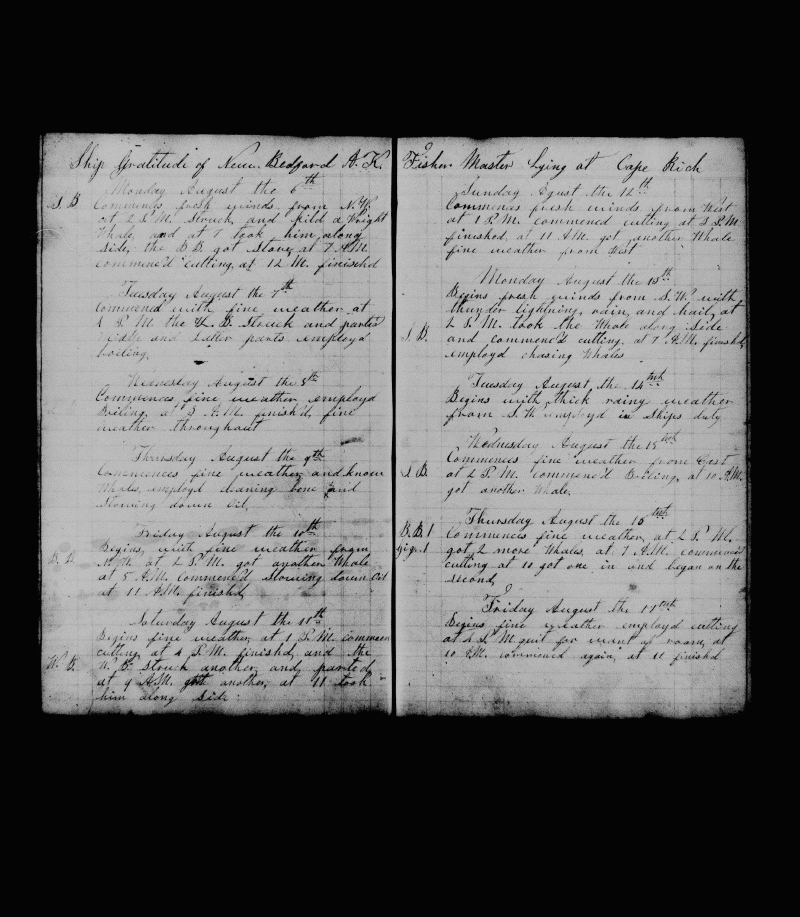 Ship Gratitude of New Bedford A. K.
Monday August the 6th
S B Commences fresh winds from
at 2 P.M. Struck and kild a Wright
Whale, and at 7 took him along
side, the B B got Stove, at 7 A.M.
commenc'd cutting, at 12 M. finisched
Tuesday August the 7th
Commencd with fine weather at
P M the B. Struck and parted
and Later parts employd
boiling,
Wednesday August the 8th
Commences fine weather employd
Boiling, at A.M. finish'd, fine
weather throughout
Thursday August the 9th
Commences fine weather and
Whales employd cleaning bone and
Stowing down Oil,
Friday August the 10th
Begins with fine weather from
B at 2 P.M. got another Whale
at 5 A.M. commenc'd Stowing down Oil
at 11 A.M. finishd,
Saturday August the 11th
Begins fine weather, at 1 P.M. commen
cutting, at 4 P.M. finishd, and the
W. B. W. B. Struck another and parted
at 9 A.M. another, at 11 took
him along side
Fisher Master Lying at Cape Rich
Sunday Agust the 12th
Commences fresh winds from West
at 1 P.M. commencd cutting at 8 P.M.
finished, at 11 A.M. got another Whale
fine weather from West
Monday August the 13th
Begins fresh winds from S. W. with
thunter lightning, rain, and hail, at
2 P.M. took the Whale along side
S. B. and commenc'd cutting, at 7 A.M. finishd,
employd chasing Whales
Tuesday August the 14
Begins with thick rainy weather
from S. W. employd in Ships duty
Wednesday August the 15
Commences fine weather from East
S B. at 2 P.M. commenc'd Boiling, at 10 A.M.
got another Whale,
Thursday August the 16
B. B 1 Commences fine weather, at 2 P.M.
got 2 more Whales, at 7 A.M. commencd
cutting at 10 got one in and began on the
Second,
Friday August the 17
Begins fine weather employd cutting
at 4 P.M. quit for want of room, at
10 commencd again, at 11 finishd